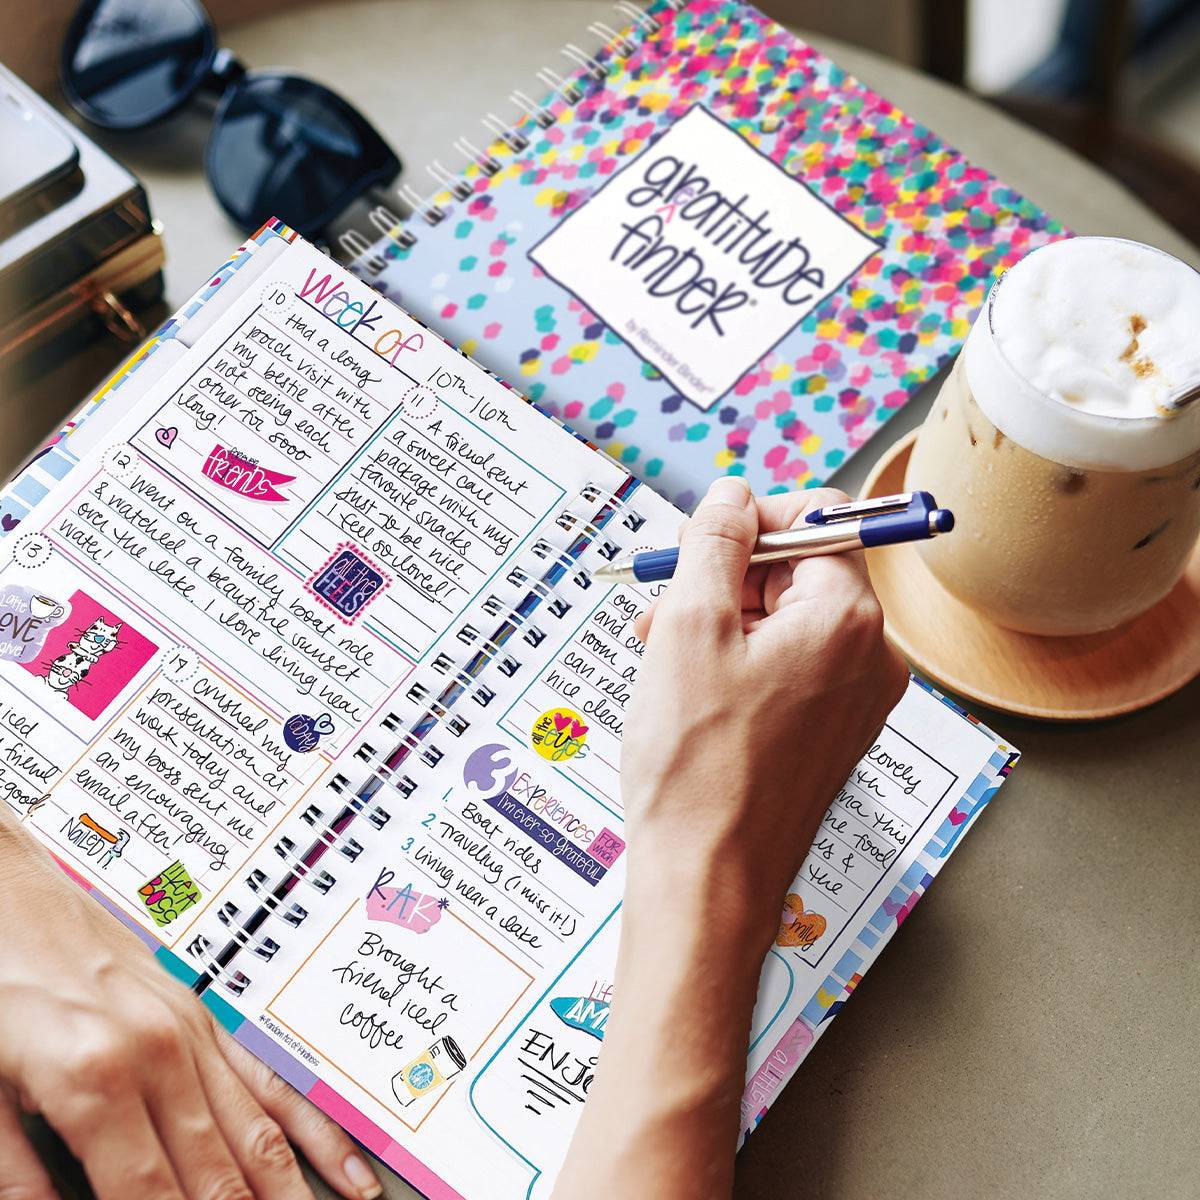 grAtitUDe
e
finDER®
by Reminder Binder®
Week of
10th-16th
10
Had a long
porch visit with
my bestie after
not seeing each
other for sooo
long!
forever
friends
11
A friend sent
a sweet care
package with my
favorite snacks
just to be nice.
I feel so loved!
all the
FEELS
12
Went on a family boat ride
& watched a beautiful sunset
over the lake. I love living near
water!
13
Latte
LOVE
give!
iced
friend
good
14
Crushed my
presentation at
work today and
my boss sent me
an encouraging
email after!
NaileD it
like A
BOSS
and
room
can rela
nice clean
all the
eyes
3 Experiences
I'm ever-so-grateful
FOR which
1. Boat rides
2. Traveling (I miss it!)
3. Living near a lake
R.A.K*
Brought a
friend iced
coffee
*Random Act of Kindness
AM
ENJO
lovely
this
food
&
the
mily
a little